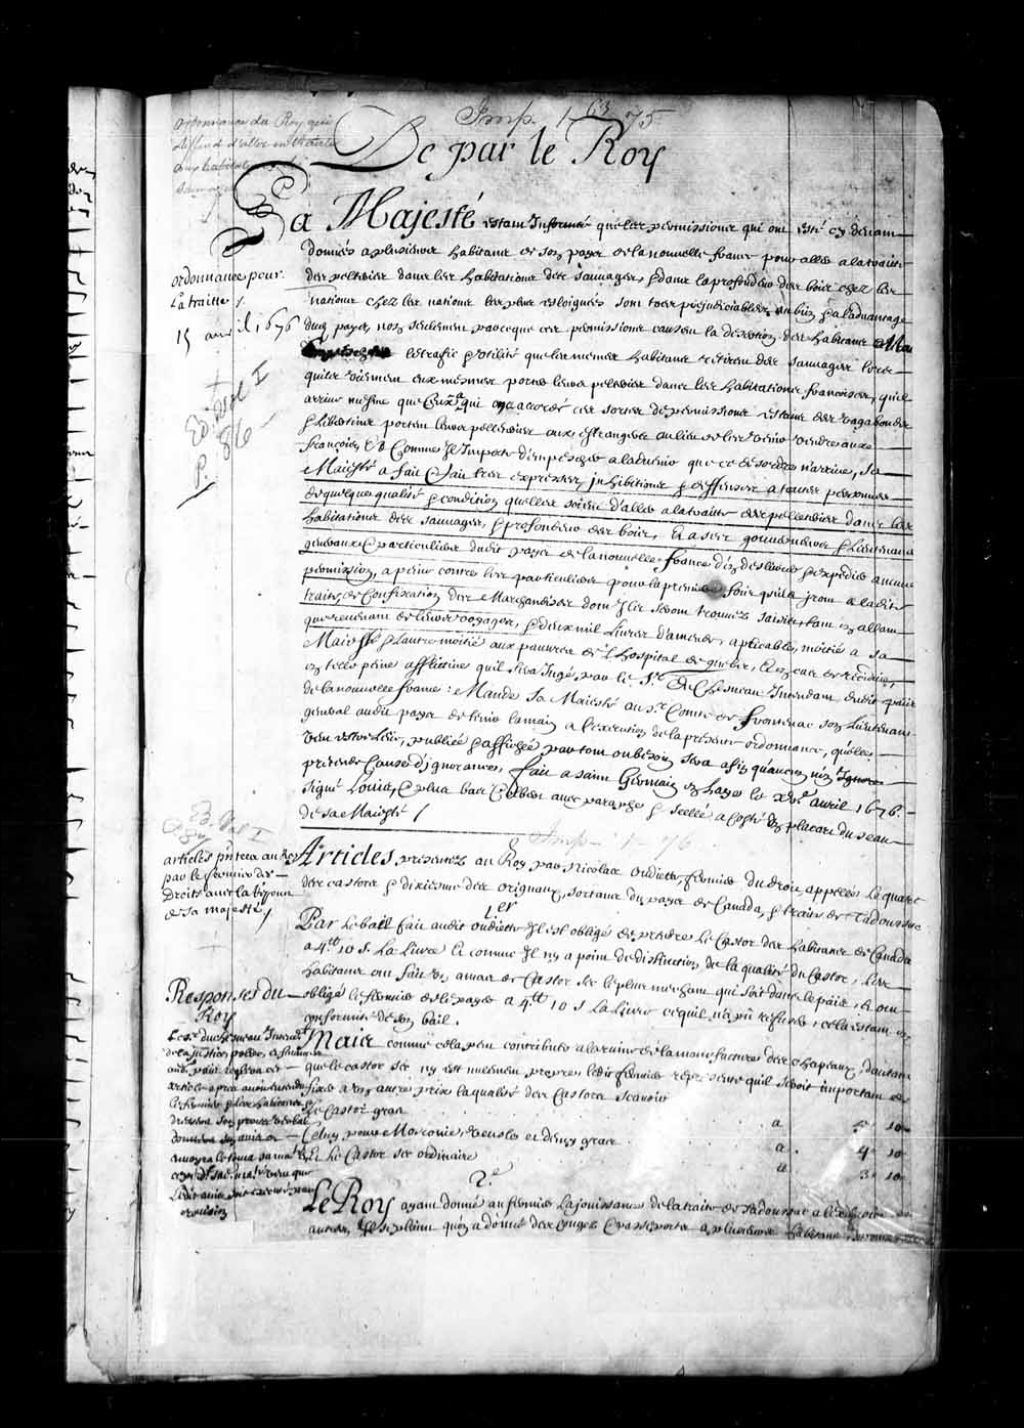 Imp. 1 63 75
De par le Roy
ordonnance du Roy qui
deffend d'aller en traitte
aux habitations des
sauvages
Sa Majesté estant Informé que les permissions qui ont esté cy devant
données a plusieurs habitans de son payes de la nouvelle france pour aller a la traitte
des pelteries dans les habitations des sauvages, & dans la profondeur des bois chez les
nations chez les nations les plus esloignées sont tres prejudiciables au bien & a l'advantage
dud. payes, non seulement parceque ces permissions causent la desertion des habitans
le trafic & utilité que les mesmes habitans retirent des sauvages lors
qu'ils viennent eux mesmes porter leurs pelteries dans les habitations françoises, qu'il
arrive mesme que ceux a qui on a accordé ces sortes de permissions estans des vagabonds
& libertins portent leurs pelleteries aux estrangers au lieu de les venir vendre aux
françois, Et Comme Il Importe d'empescher a l'advenir que ce desordre n'arrive, Sa
Majesté a fait & fait tres expresses inhibitions & deffenses a toutes personnes
de quelque qualité & condition quelles soient d'aller a la traitte des pelleteries dans les
habitations des sauvages, & profondeur des bois, Et a ses gouverneurs & Lieutenans
generaux & particuliers dudit payes de la nouvelle france d'en deslivrer & expedier aucune
permission, a peine contre les particuliers pour la premiere fois qu'ils iront a ladite
traite, de Confiscation des Marchandises dont Ils seront trouvez saisis, tant en allant
que revenant de leurs voyages, & deux mil Livres d'amende, aplicable, moitié a Sa
Majesté & l'autre moitié aux pauvres de l'Hospital de quebec, Et en cas de recidive,
en telle peine afflictive qu'il sera Jugé, par le Sr. Du Chesneau Intendant dudit païs
de la nouvelle france: Mande Sa Majesté au Sr. Comte de frontenac son Lieutenant
general audit payes de tenir la main a l'execution de la presente ordonnance, quelle
veut estre leüe, publiée & affichée partout ou besoin sera afin qu'aucun n'en Ignore
pretende Cause d'ignorance, fait a saint Germain en Laye le xve avril 1676.
Signé Louis, & plus bas Colbert avec paraphe & scellé a costé en placart du seau
de sa Maiesté /
ordonnance pour
La traitte /.
15 avril 1676
Ed. Vol I
P. 86
Imp- 1- 76
Ed. Vol I
articles pntez au Roy
par le fermier des
Droits avec la réponse
de sa majesté /
Articles presentez au Roy par Nicolas oudiette, fermier du droit, appellé le quart
des castors & dixieme des orignaux, sortans du payes de Canada, & traite de Tadoussac
1er
Par le bail fait audit oudiette Il est obligé de prendre le Castor des habitans de Canada
a 4tt 10 s. La Livre Et comme Il n'y a point de distinction de la qualité du Castor, les
habitans ont fait un amas de Castor sec le plus meschant qui soit dans le païs, & ont
obligé le fermier de le payer a 4tt 10 s La Livre ce qu'il n'a pû refuser, cela estant
conforme de son bail.
Mais comme cela peut contribuer a la ruine de la manufacture des chapeaux, d'autant
que le castor sec n'y est nullement propre ledit fermier represente qu'il seroit important de
fixer a un autre prix la qualité des Castors scavoir
Le Castor gras a 5 10
Celuy pour Moscovie, veules et demy gras a 4 10
Et Le Castor sec ordinaire a 3 10
Responses du
Roy
2e
Le Roy ayant donné au fermier la jouissance de la traite de Tadoussac a l'exclusion de
autres, Il se plaint qu'on a donné des Congés & passeports a plusieurs habitans